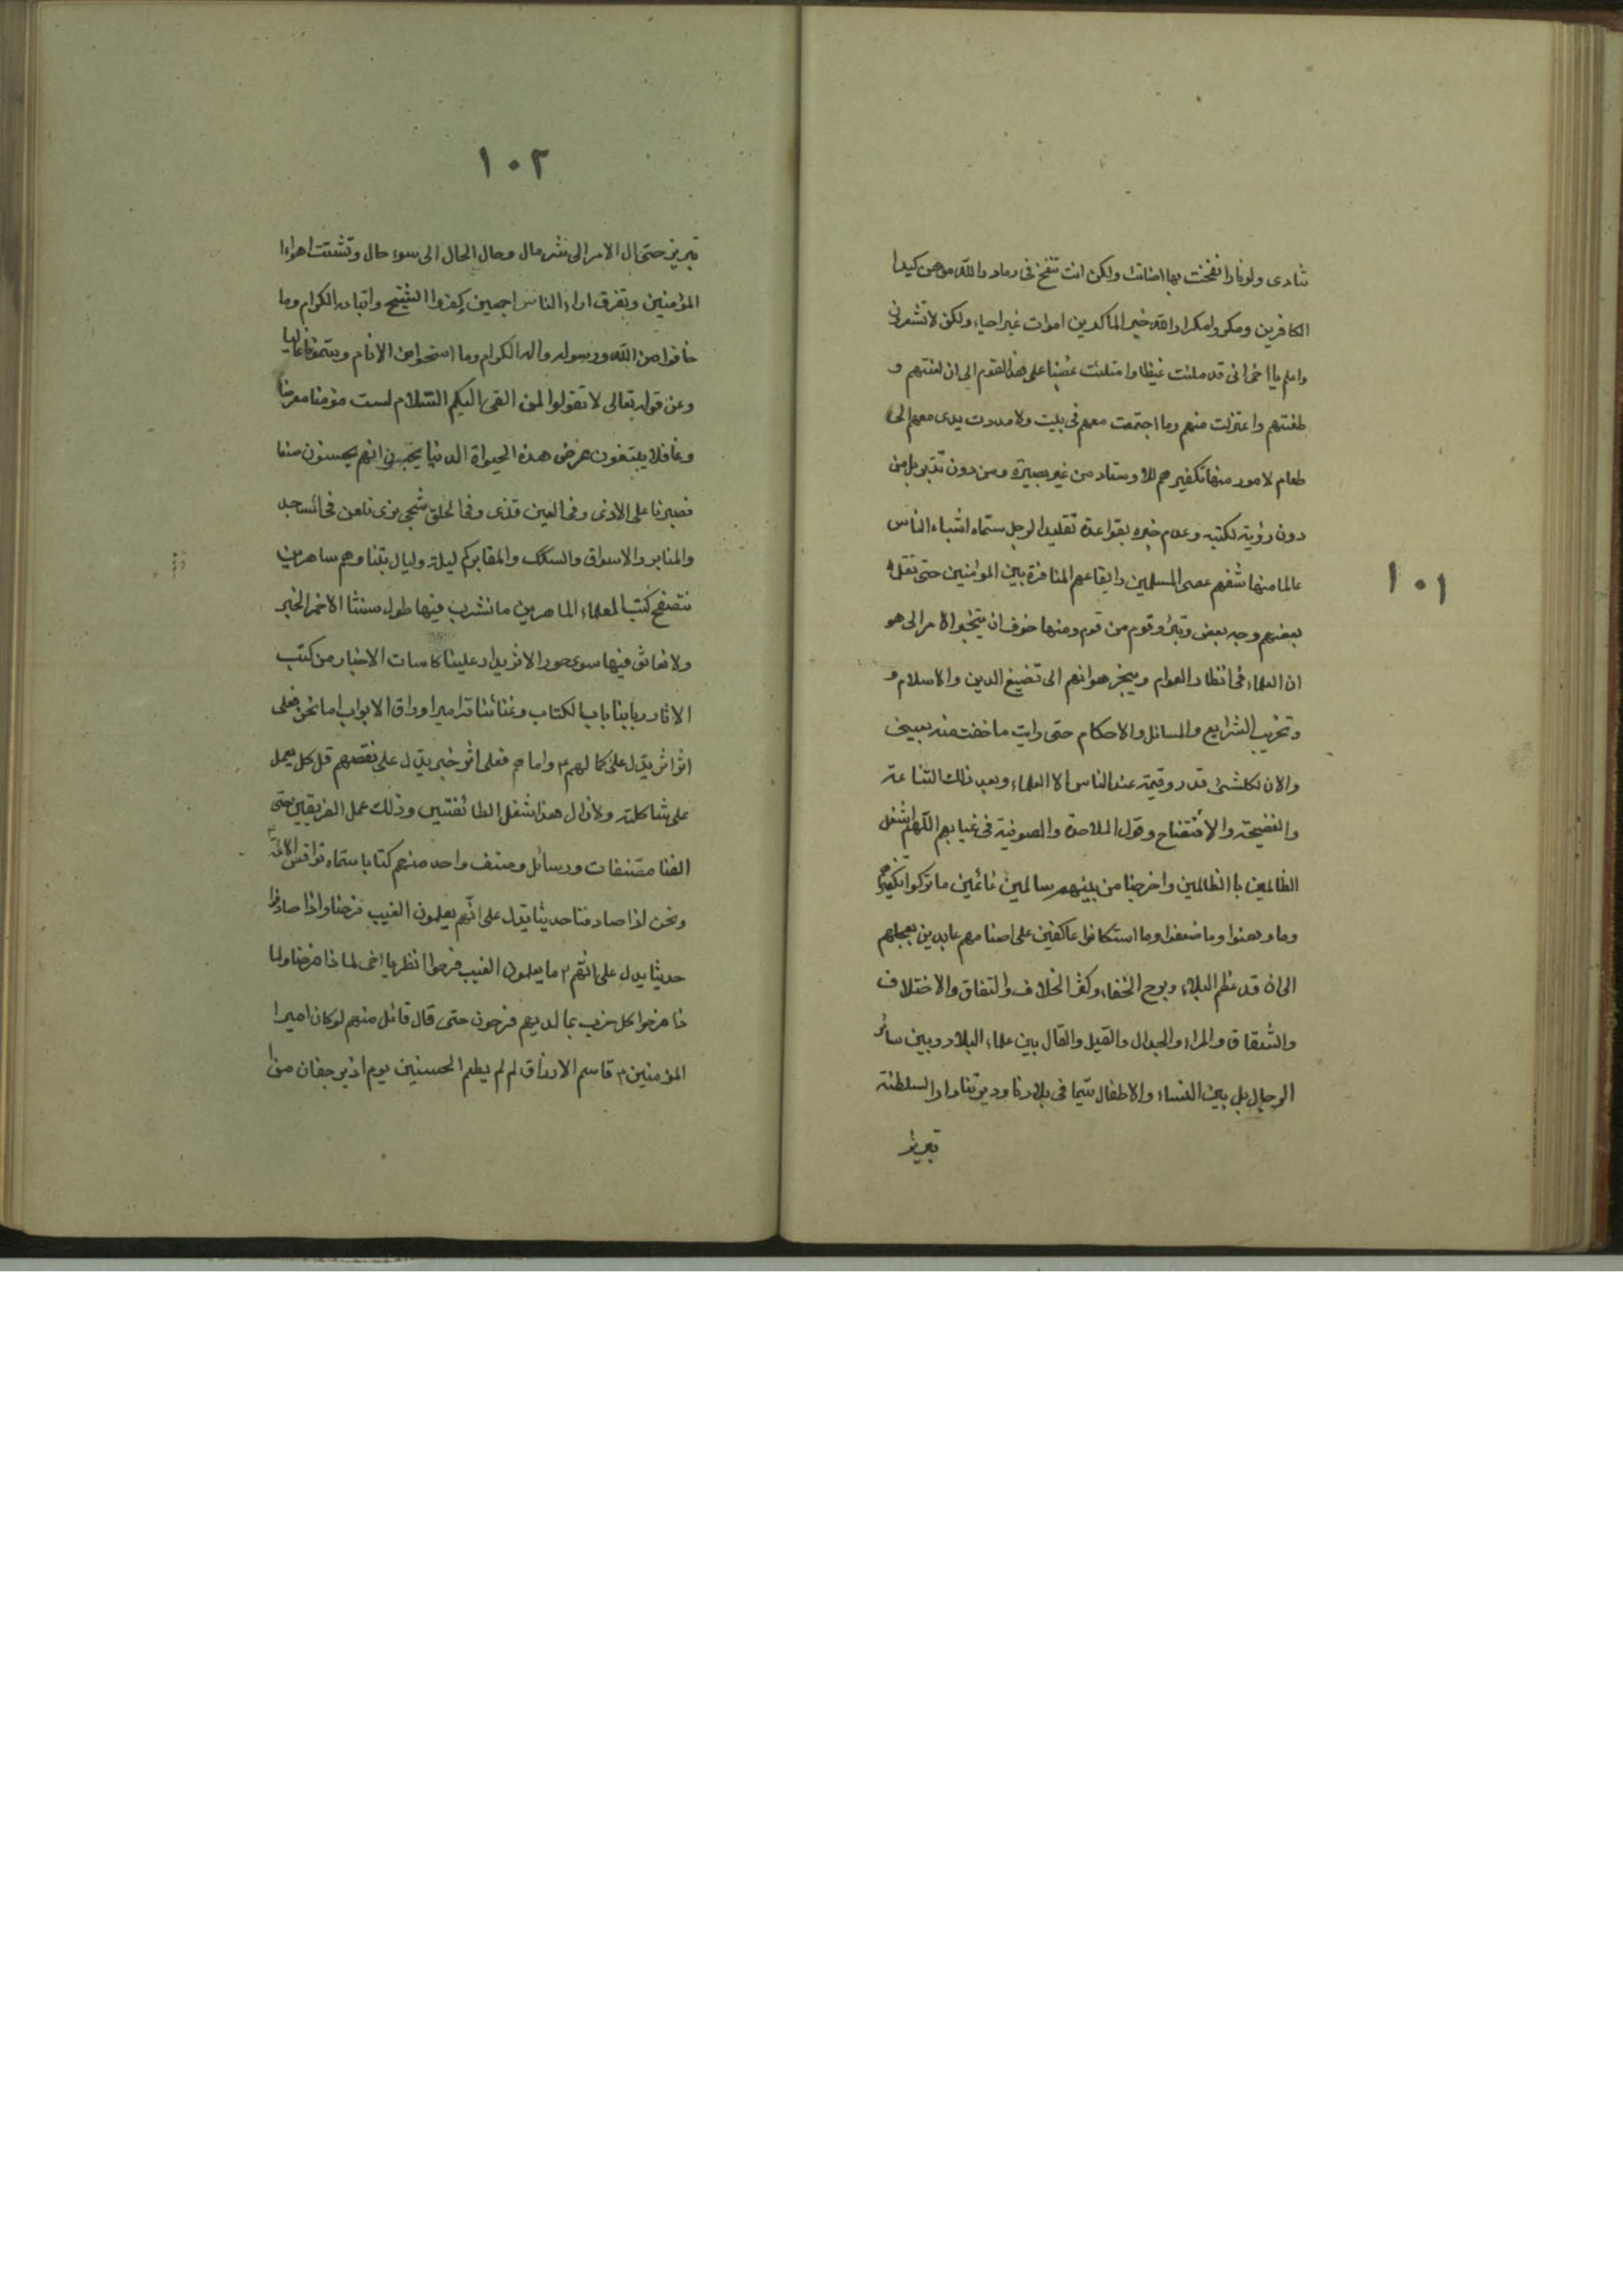 ١٠١
تنادى ولو نارا نفخت بها اضائت ولكن انت تنفخ فى رماد والله موهن كيد
الكافرين ومكروا مكرا والله خير الماكرين اموات غير احياء ولكن لا تشعرون
واعلم يا اخى انى قد ملئت غيظا وامتلئت غضبا على هذا القوم الى ان لعنتهم و
طعنتهم واعتزلت منهم وما اجتمعت معهم فى بيت ولا مددت يدى معهم الى
طعام لامور منها تكفيرهم للاوستاد من غير بصيرة ومن دون تدبر بل من
دون رؤية لكتبه وعدم خبره بقواعده تقليدا لرجل سماه اشباه الناس
عالما منها شقهم عصى المسلمين وايقاعهم المنافرة بين المؤمنين حتى تفل
بعضهم وجه بعض وتبرؤ قوم من قوم ومنها خوف ان ينجر الامر الى هو
ان العلماء فى انظار العوام وينجر هوانهم الى تضييع الدين والاسلام و
وتخريب الشرايع والمسائل والاحكام حتى رايت ما خفت منه بعينى
والان لكلشئ قدر وقيمة عند الناس الا العلماء وبعد ذلك الشناعة
والفضيحة والافتضاح وقول الملاحدة والصوفية فى غيابهم اللهم اشغل
الظالمين باالظالمين واخرجنا من بينهم سالمين غانمين ما تركوا تكفيرهم
وما وهنوا وما ضعفوا وما استكانوا عاكفين على اصنامهم عابدين بعجلهم
الى ان قد عظم البلاء وبرح الخفاء وكثر الخلاف والنفاق والاختلاف
والشقاق والمراء والجدال والقيل والقال بين علماء البلاد وبين سائر
الرجال بل بين النساء والاطفال سيما فى بلادنا وديرتنا دار السلطنة
تبريز
١٠٢
تبريز حتى ال الامر الى شر مال وحال الحال الى سوء حال وتشتت اهواء
المؤمنين وتفرق اراء الناس اجمعين كفروا الشيخ واتباعه الكرام وما
خافوا من الله ورسوله واله الكرام وما استحيوا من الانام ويتمونا غاليا
وعن قوله تعالى لا تقولوا لمن القى اليكم السلام لست مؤمنا معرضا
وغافلا يبتغون عرض هذه الحيواة الدنيا يحسبون انهم يحسنون صنعا
فصبرنا على الاذى وفى العين قذى وفى الحلق شجى نرى نلعن فى المساجد
والمنابر والاسواق والسكك والمقابر كم ليلة وليال بتنا وهم ساهرين
نتصفح كتب العلماء الماهرين ما نشرب فيها طول سنتنا الا خمر الخبر
ولا نعانق فيها سوى حور الاثر يدار علينا كاسات الاخبار من كتب
الاثار ربابنا باب الكتاب وغنائنا تزامير اوراق الابواب اما نحن فعلى
اثر اثر يدل على كمالهم ع واما هم فعلى اثر خبر يدل على نقصهم قل كل يعمل
على شاكلته ولا زال هذا شغل الطائفتين وذلك عمل الفريقين حتى
الفنا مصنفات ورسائل وصنف واحد منهم كتابا سماه نواقص الائمة
ونحن اذا صادفنا حديثا يدل على انهم يعلمون الغيب فرحنا واذا صادفوا
حديثا يدل على انهم ع ما يعلمون الغيب فرحوا انظر يا اخى لما ذا فرحنا ولما
ذا فرحوا كل حزب بما لديهم فرحون حتى قال قائل منهم لو كان امير ا
المؤمنين ع قاسم الارزاق لم لم يطعم الحسنين يوم اذ يرجفان من